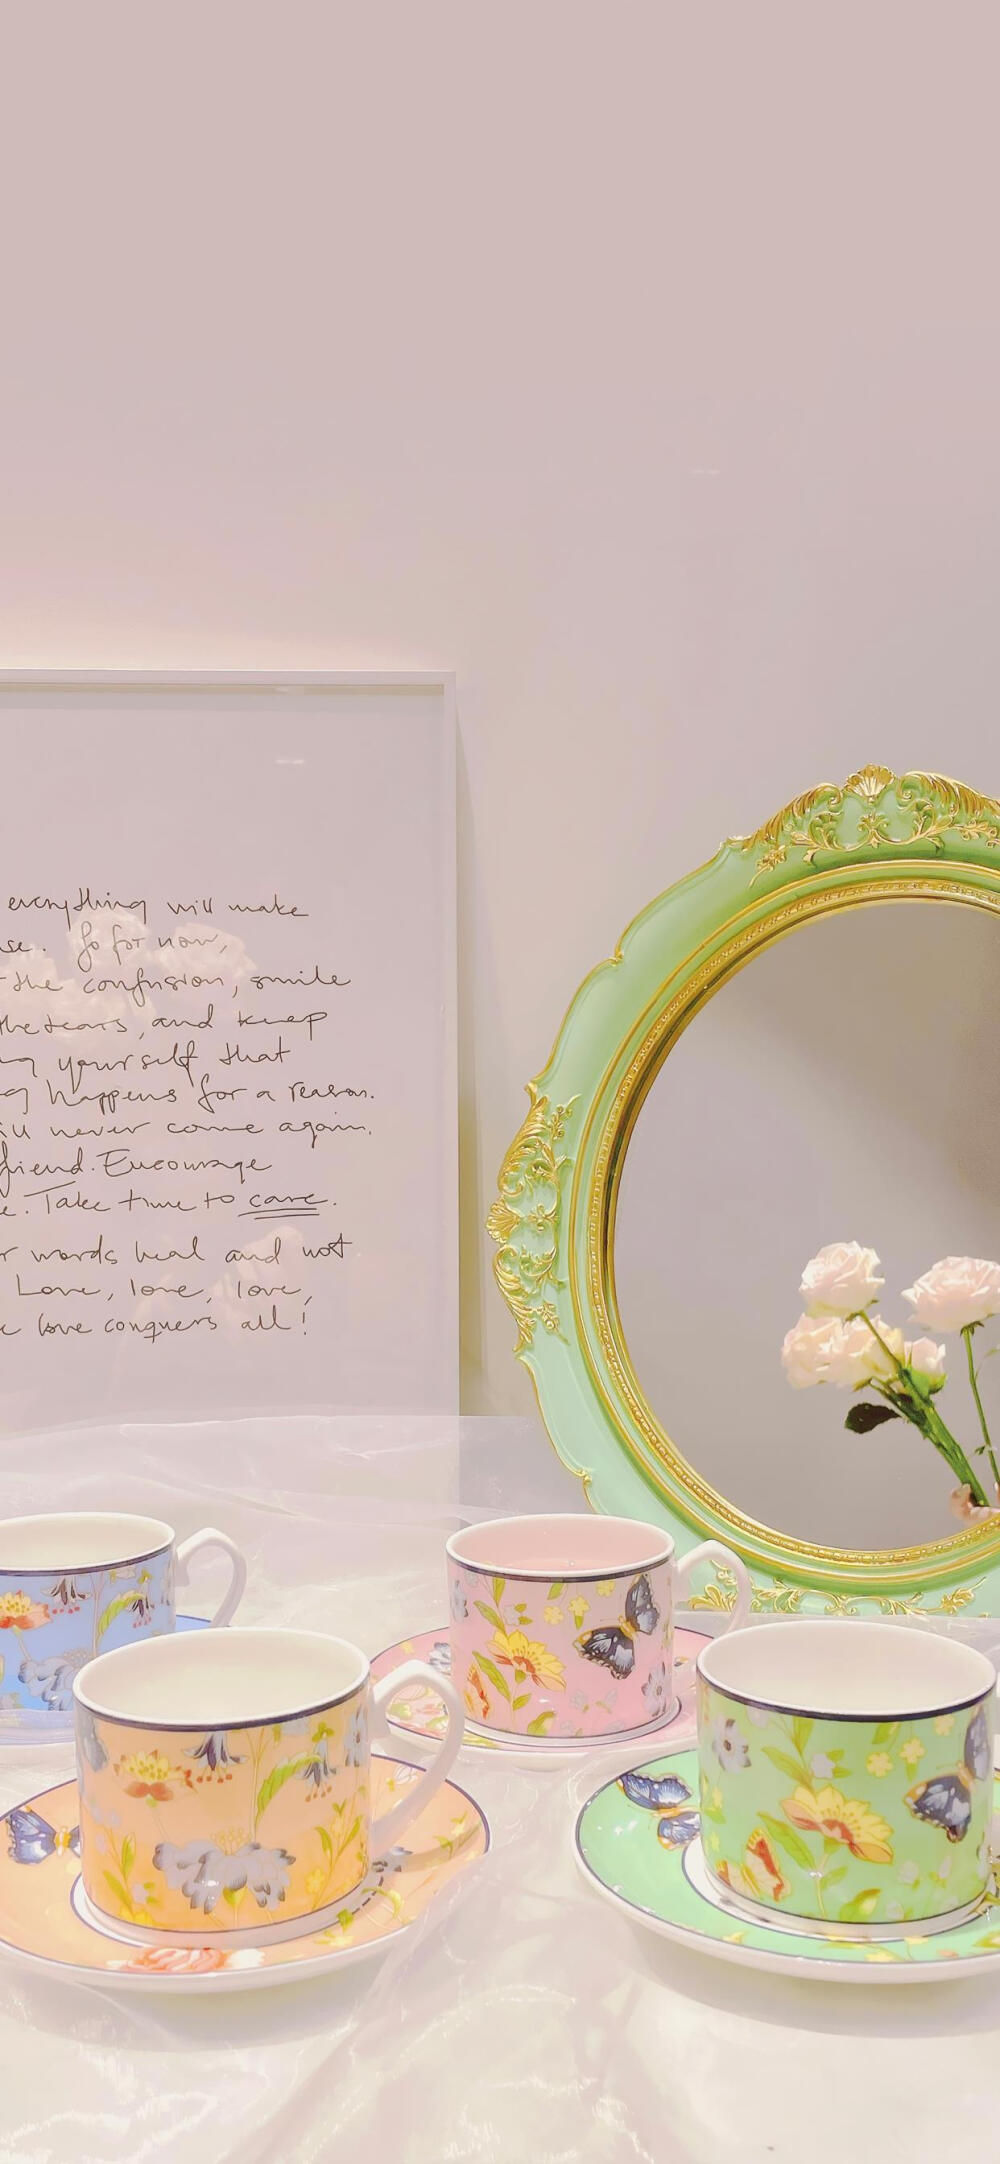 everything will make
se. So for now,
the confusion, smile
the tears, and keep
g yourself that
g happens for a reason.
ill never come again.
friend. Encourage
e. Take time to care.
r words heal and not
Love, love, love,
e love conquers all!